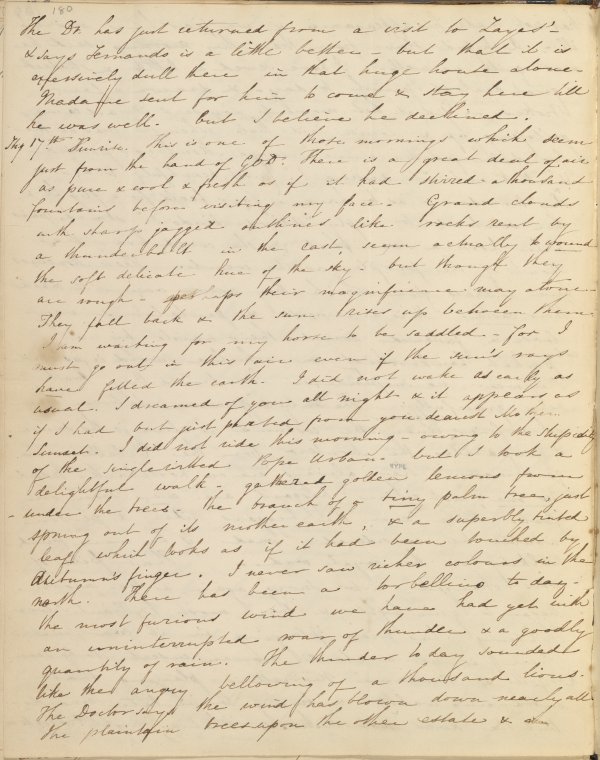 180
The Dr. has just returned from a visit to Zayas' -
& says Fernando is a little better - but that it is
excessively dull there in that huge house alone -
Madame sent for him to come & stay here till
he was well. But I believe he declined.
Thy 17th Sunrise. This is one of those mornings which seem
just from the hand of GOD. There is a great deal of air
as pure & cool & fresh as if it had stirred a thousand
fountains before visiting my face. Grand clouds
with sharp jagged outlines like rocks rent by
a thunderbolt in the east, seem actually to wound
the soft delicate hue of the sky - but though they
are rough - perhaps their magnificence may atone -
They fall back & the sun rises up between them.
I am waiting for my horse to be saddled - for I
must go out in this air even if the sun's rays
have filled the earth. I did not wake as early as
usual. I dreamed of you all night & it appears as
if I had but just parted from you dearest Mother.
Sunset. I did not ride this morning - owing to the stupidity
of the single Pope Urban - but I took a
delightful walk - gathered golden lemons from
- under the trees - the branch of a tiny palm tree, just
sprung out of its mother earth, & a superbly tinted
leaf which looks as if it had been touched by
Autumn's finger. I never saw richer colours in the
north. There has been a torbellino to day -
the most furious wind we have had yet with
an uninterrupted roar of thunder & a goodly
quantity of rain. The thunder to day sounded
like the angry bellowing of a thousand lions.
The Doctor says the wind has blown down nearly all
the plantain trees upon the other estate & a